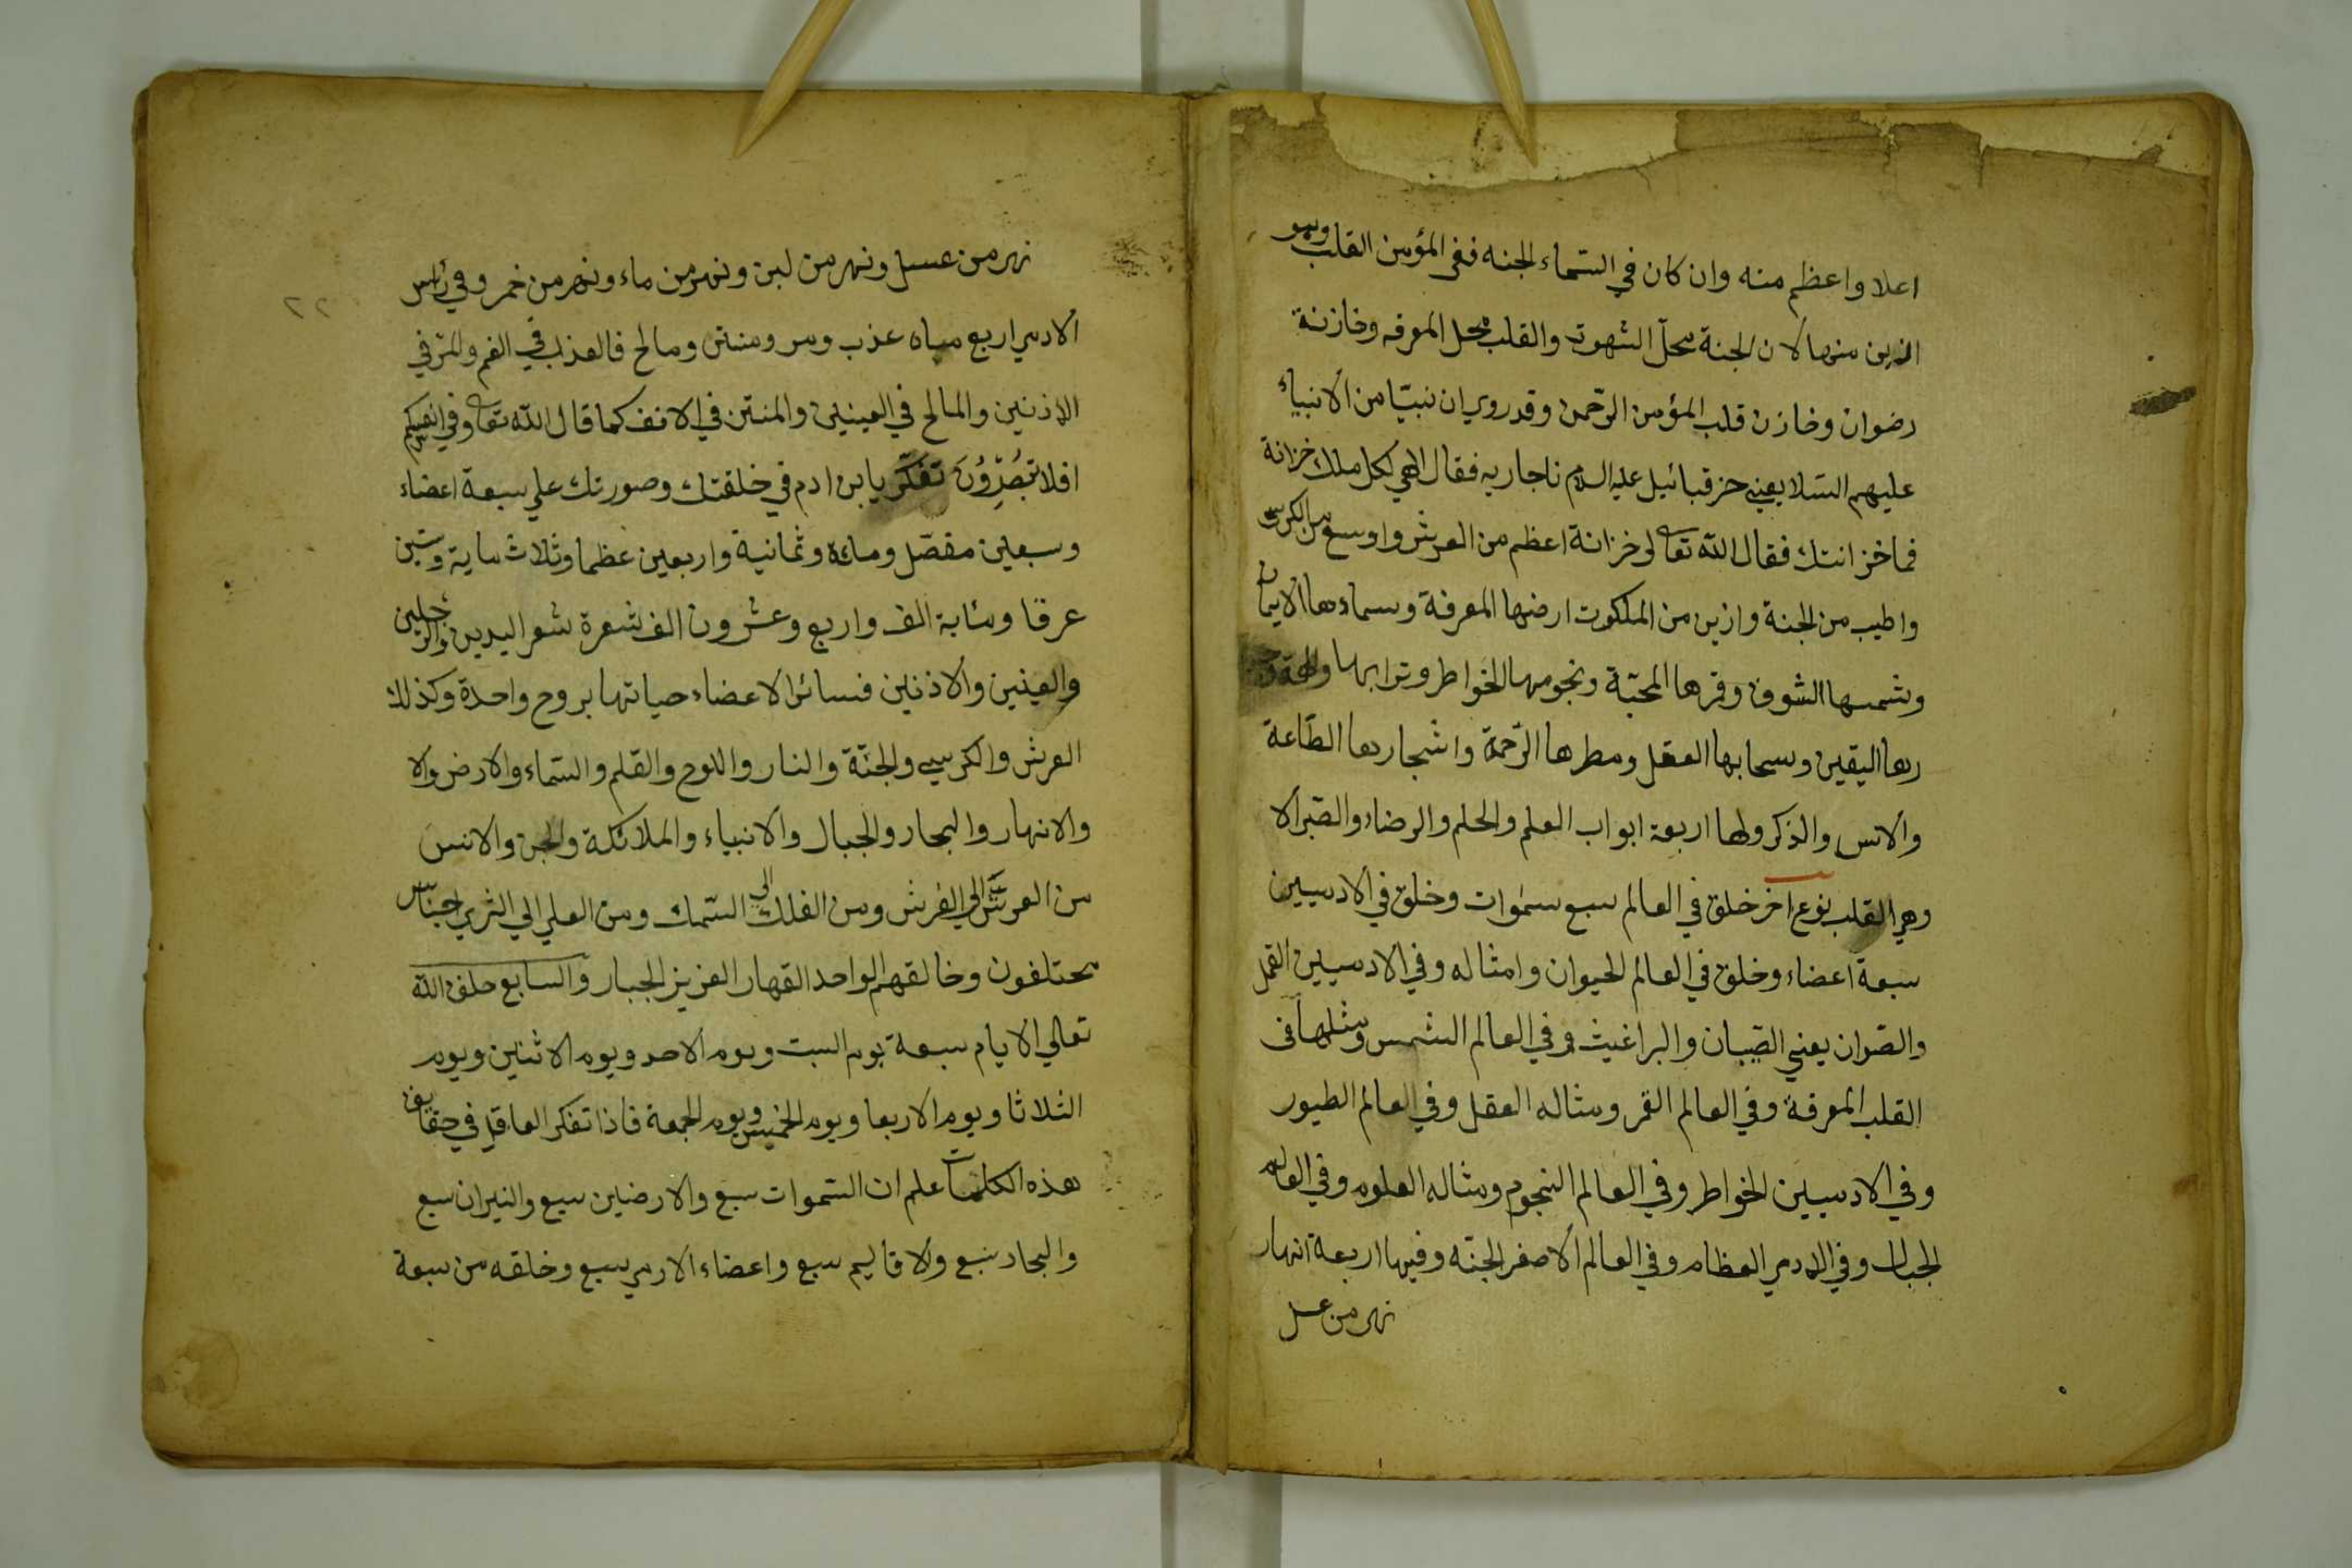 اعلا واعظم منه وان كان في السماء الجنه ففي المؤمن القلب وهو
ازين منها لان الجنة محلّ الشهوت والقلب محل المعرفه وخازنة
رضوان وخازن قلب المؤمن الرّحمن وقد روي ان نبيّا من الأنبياء
عليهم السّلا يعني حزقيائيل عليه السلام ناجا ربه فقال الهي لكل ملك خزانة
فما خزانتك فقال اللّه تعالى لى خزانة اعظم من العرش واوسع من الكرسى
واطيب من الجنة وازين من الملكوت ارضها المعرفة وسماءها الايمان
وشمسها الشوق وقمرها المحبّة ونجومها الخواطر وترابها
اليقين وسحابها العقل ومطرها الرّحمة واشجارها الطّاعة
والانس والذكر ولها اربعة ابواب العلم والحلم والرضاء والصّبر الا
وهي القلب نوع اخر خلق في العالم سبع سموات وخلق في الادميين
سبعة اعضاء وخلق في العالم الحيوان وامثاله وفي الادميين القمل
والصّوان يعني الصّبان والبراغيث وفي العالم الشمس ومثلها فى
القلب المعرفة وفي العالم القمر ومثاله العقل وفي العالم الطيور
وفي الادميين الخواطر وفي العالم النجوم ومثاله العلوم وفي العالم
الجبال وفي الادمي العظام وفي العالم الأصفر الجنّه وفيها اربعة انهار
نهر من عسل
٢٢
نهر من عسل ونهر من لبن ونهر من ماء ونهر من خمر وفي رأس
الادمي اربع مياه عذب ومر ومنتن ومالح فالعذب في الفم والمرّ في
الاذنين والمالح في العينين والمنتن في الانف كما قال اللّه تعا وفي انفسكم
افلا تبصرون تفكّر يا بن ادم في خلقتك وصورتك علي سبعة اعضاء
وسبعين مفصّل ومائة وثمانية واربعين عظما وثلاث ماية وستين
عرقا ومئاية الف واربع وعشرون الف شعرة شعر اليدين والرجلين
والعينين والاذنين فسائر الاعضاء حياتها بروح واحدة وكذلك
العرش والكرسي والجنّة والنار واللوح والقلم والسّماء والارض والا
والانهار والبحار والجبال والأنبياء والملائكة والجن والانس
من العرش الي الفرش ومن الفلك الي السّمك ومن العلي الي الثري اجناس
مختلفون وخالقهم الواحد القهار العزيز الجبار والسابع خلق اللّه
تعالي الايام سبعة يوم السبت ويوم الاحد ويوم الاثنين ويوم
الثلاثا ويوم الاربعا ويوم الخميس ويوم الجمعة فاذا تفكر العاقل في حقايق
هذه الكلمات علم ان السّموات سبع والارضين سبع والنيران سبع
والبحار سبع والاقاليم سبع واعضاء الادمي سبع وخلقه من سبعة